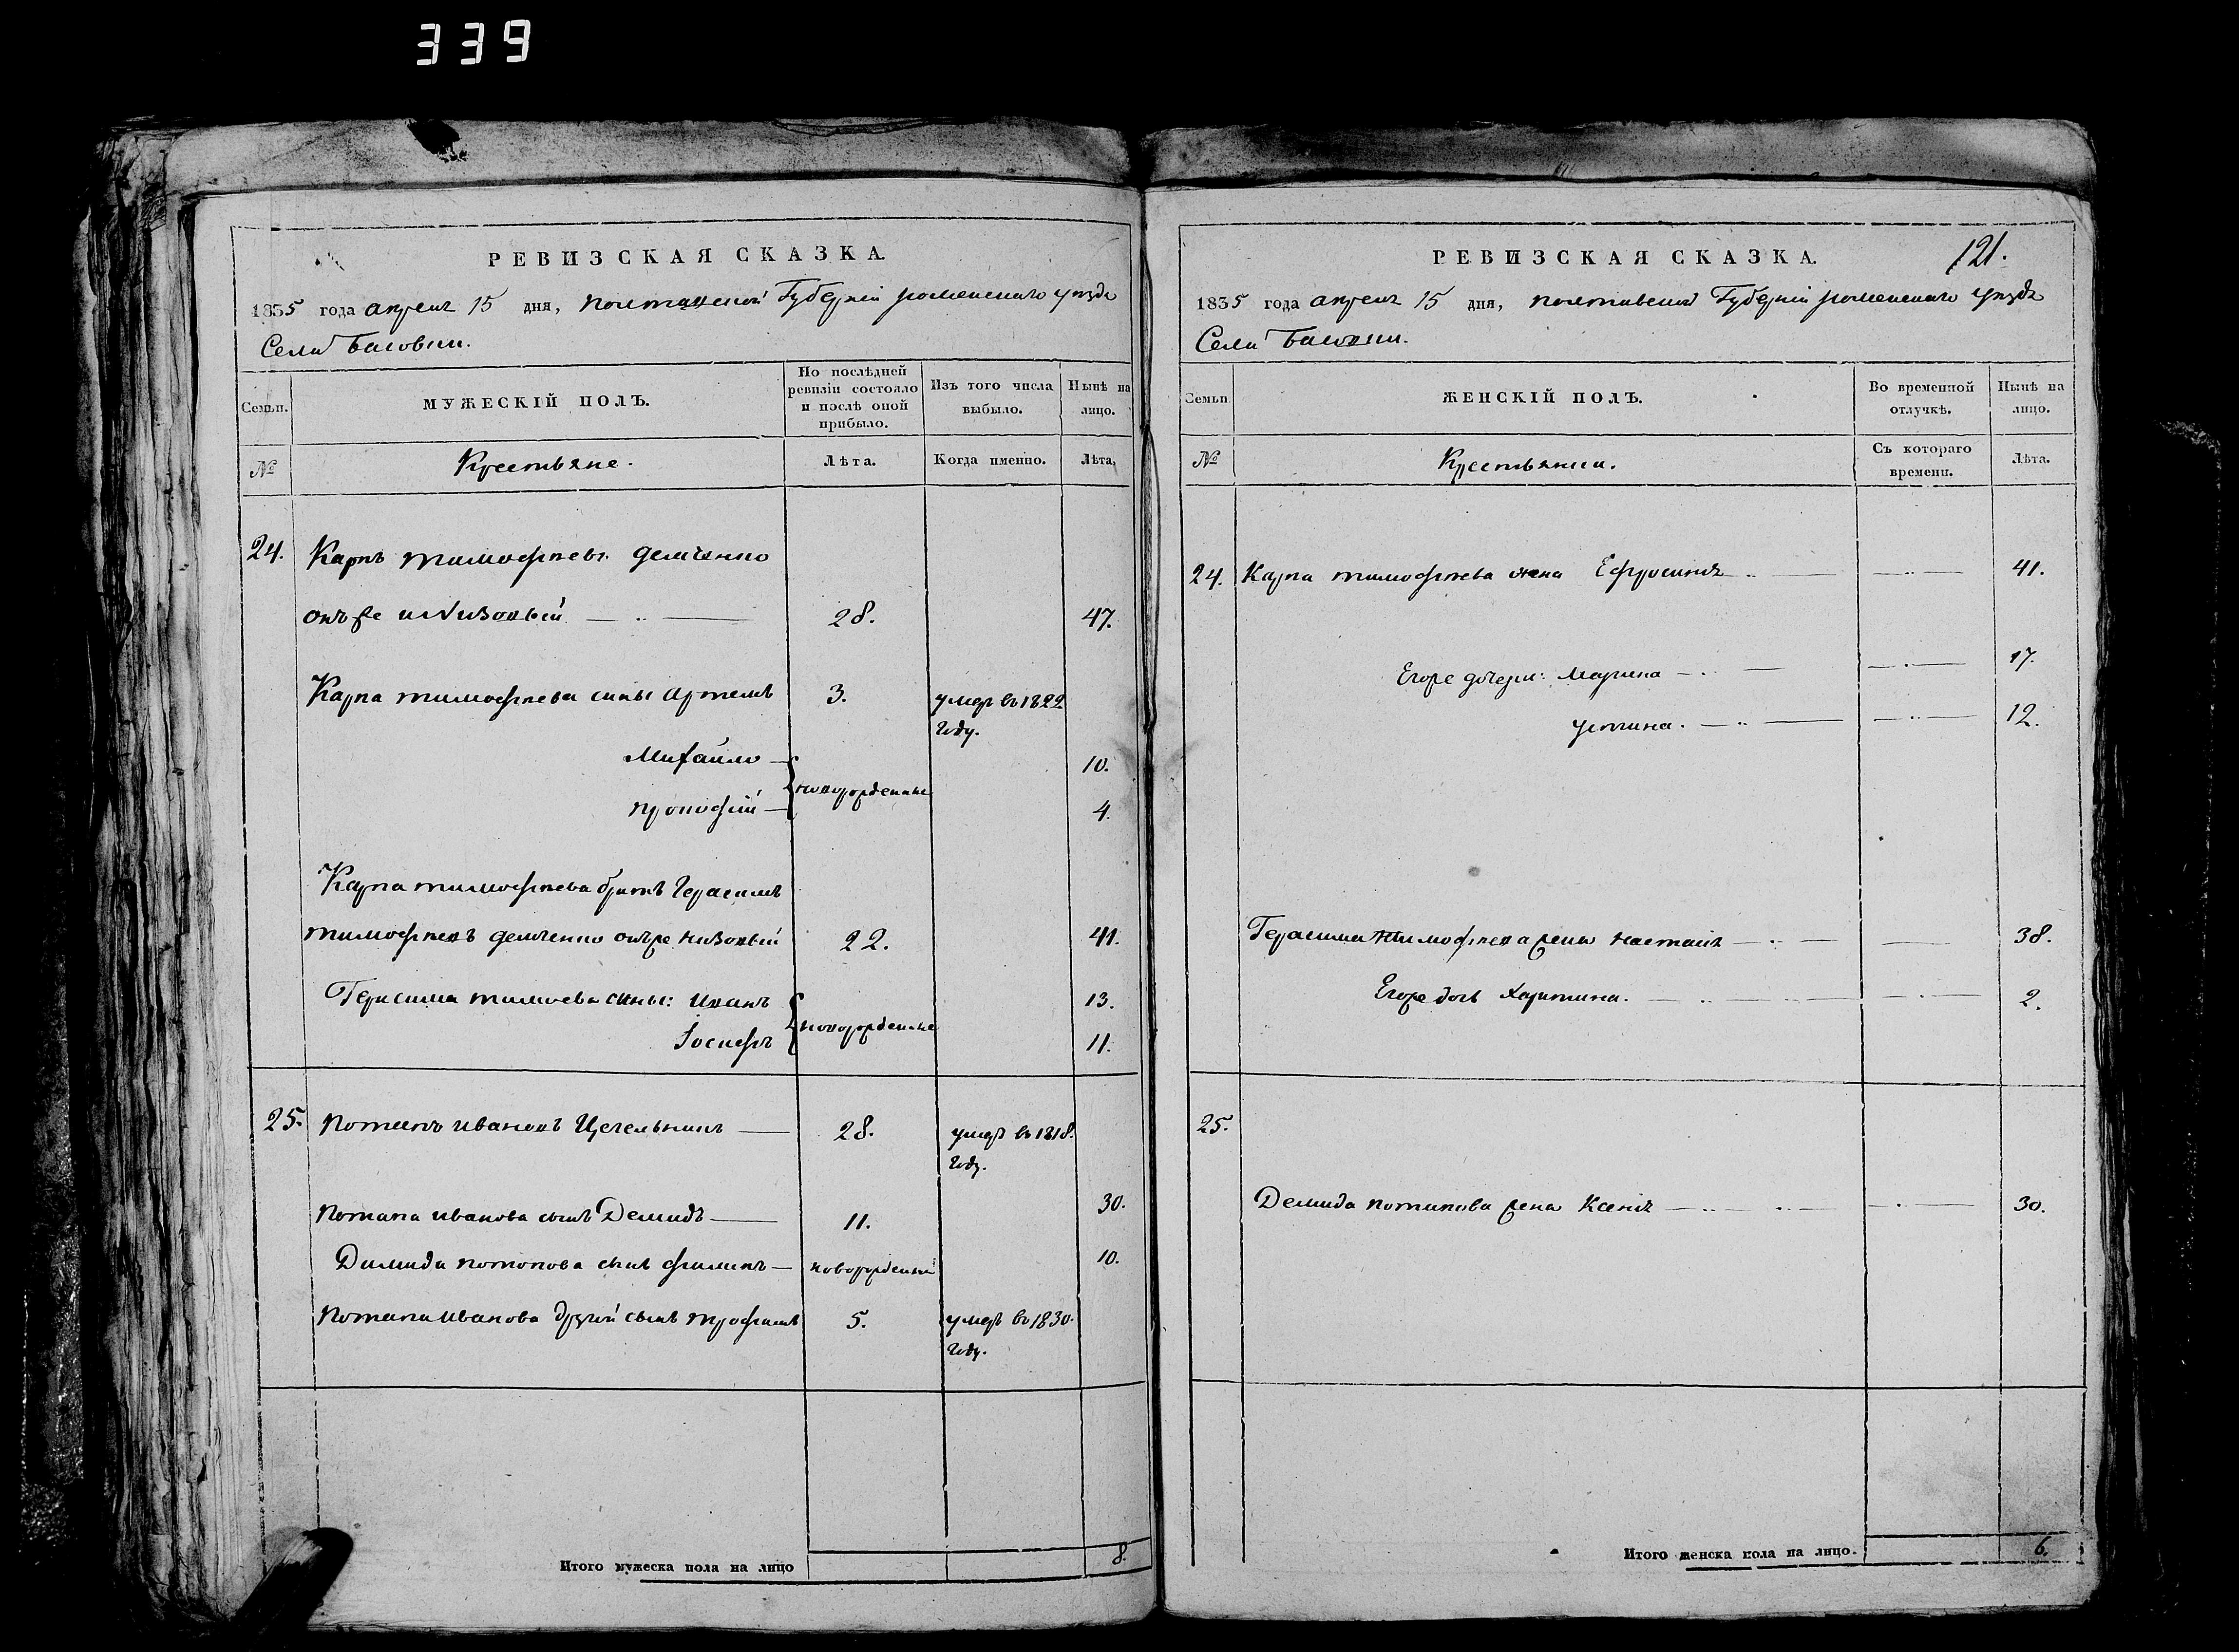 339
РЕВИЗСКАЯ СКАЗКА.
1835 года апреля 15 дня, Полтавской Губерніи роменскаго уезда
Села Басовки.
Семьи.
МУЖЕСКІЙ ПОЛЪ.
По послѣдней ревизіи состояло и послѣ оной прибыло.
Изъ того числа выбыло.
Нынѣ на лицо.
№
Крестьяне.
Лѣта.
Когда именно.
Лѣта,
24. Карпъ тимофеевъ демченко
онъ же и Низовый 28. 47.
Карпа тимофеева сины Артемъ 3. умеръ въ 1822 году.
Михайло 10.
новорожденые
прокофій 4.
Карпа тимофеева братъ Герасимъ
тимофеевъ демченко онъ же низовый 22. 41.
Герасима тимоева сины: иванъ 13.
новорожденые
Іосифъ 11.
25. Потапъ ивановъ Цегельникъ 28. умеръ въ 1818. году.
Потапа иванова сынъ Демидъ 11. 30.
Димида потопова сынъ филипъ новорожденый 10.
Потапа иванова другой сынъ трофимъ 5. умеръ въ 1830. году.
Итого мужеска пола на лицо 8.
РЕВИЗСКАЯ СКАЗКА.
121.
1835 года апреля 15 дня, полтавской Губерніи роменскаго уезда
Села Басовки.
Семьи.
ЖЕНСКІЙ ПОЛЪ.
Во временной отлучкѣ.
Нынѣ на лицо.
№
Крестьянки.
Съ котораго времени.
Лѣта.
24. Карпа тимофеева жена Ефросиния 41.
Егоже дочери: Марина 17.
устина. 12.
Герасима тимофеева жена настасія 38.
Егоже дочь Харитина. 2.
25.
Демида потапова жена Ксения 30.
Итого женска пола на лицо. 6.